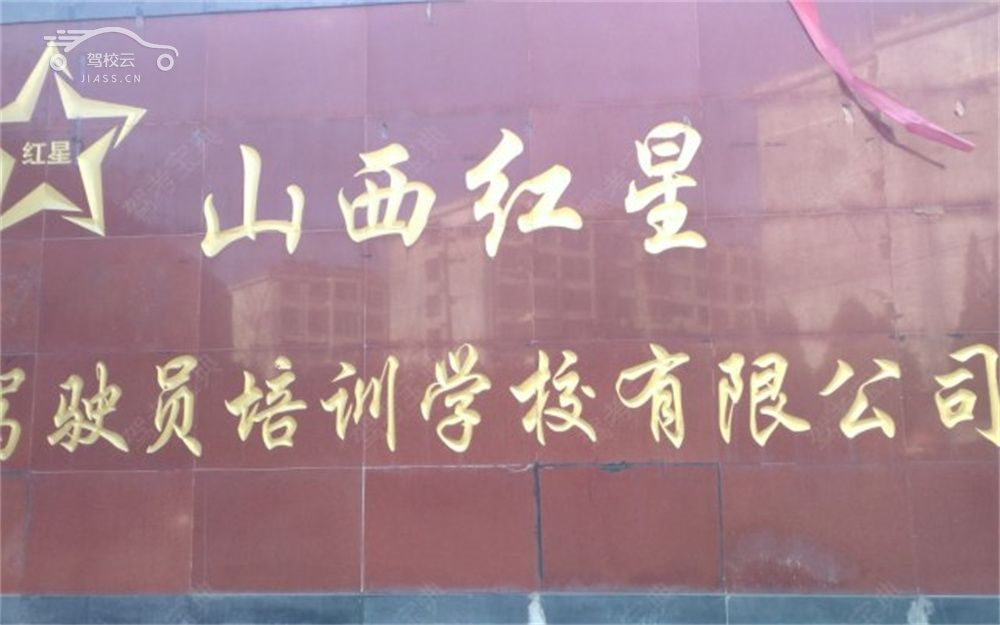 驾校云
JIASS.CN
红星
山西红星
驾驶员培训学校有限公司